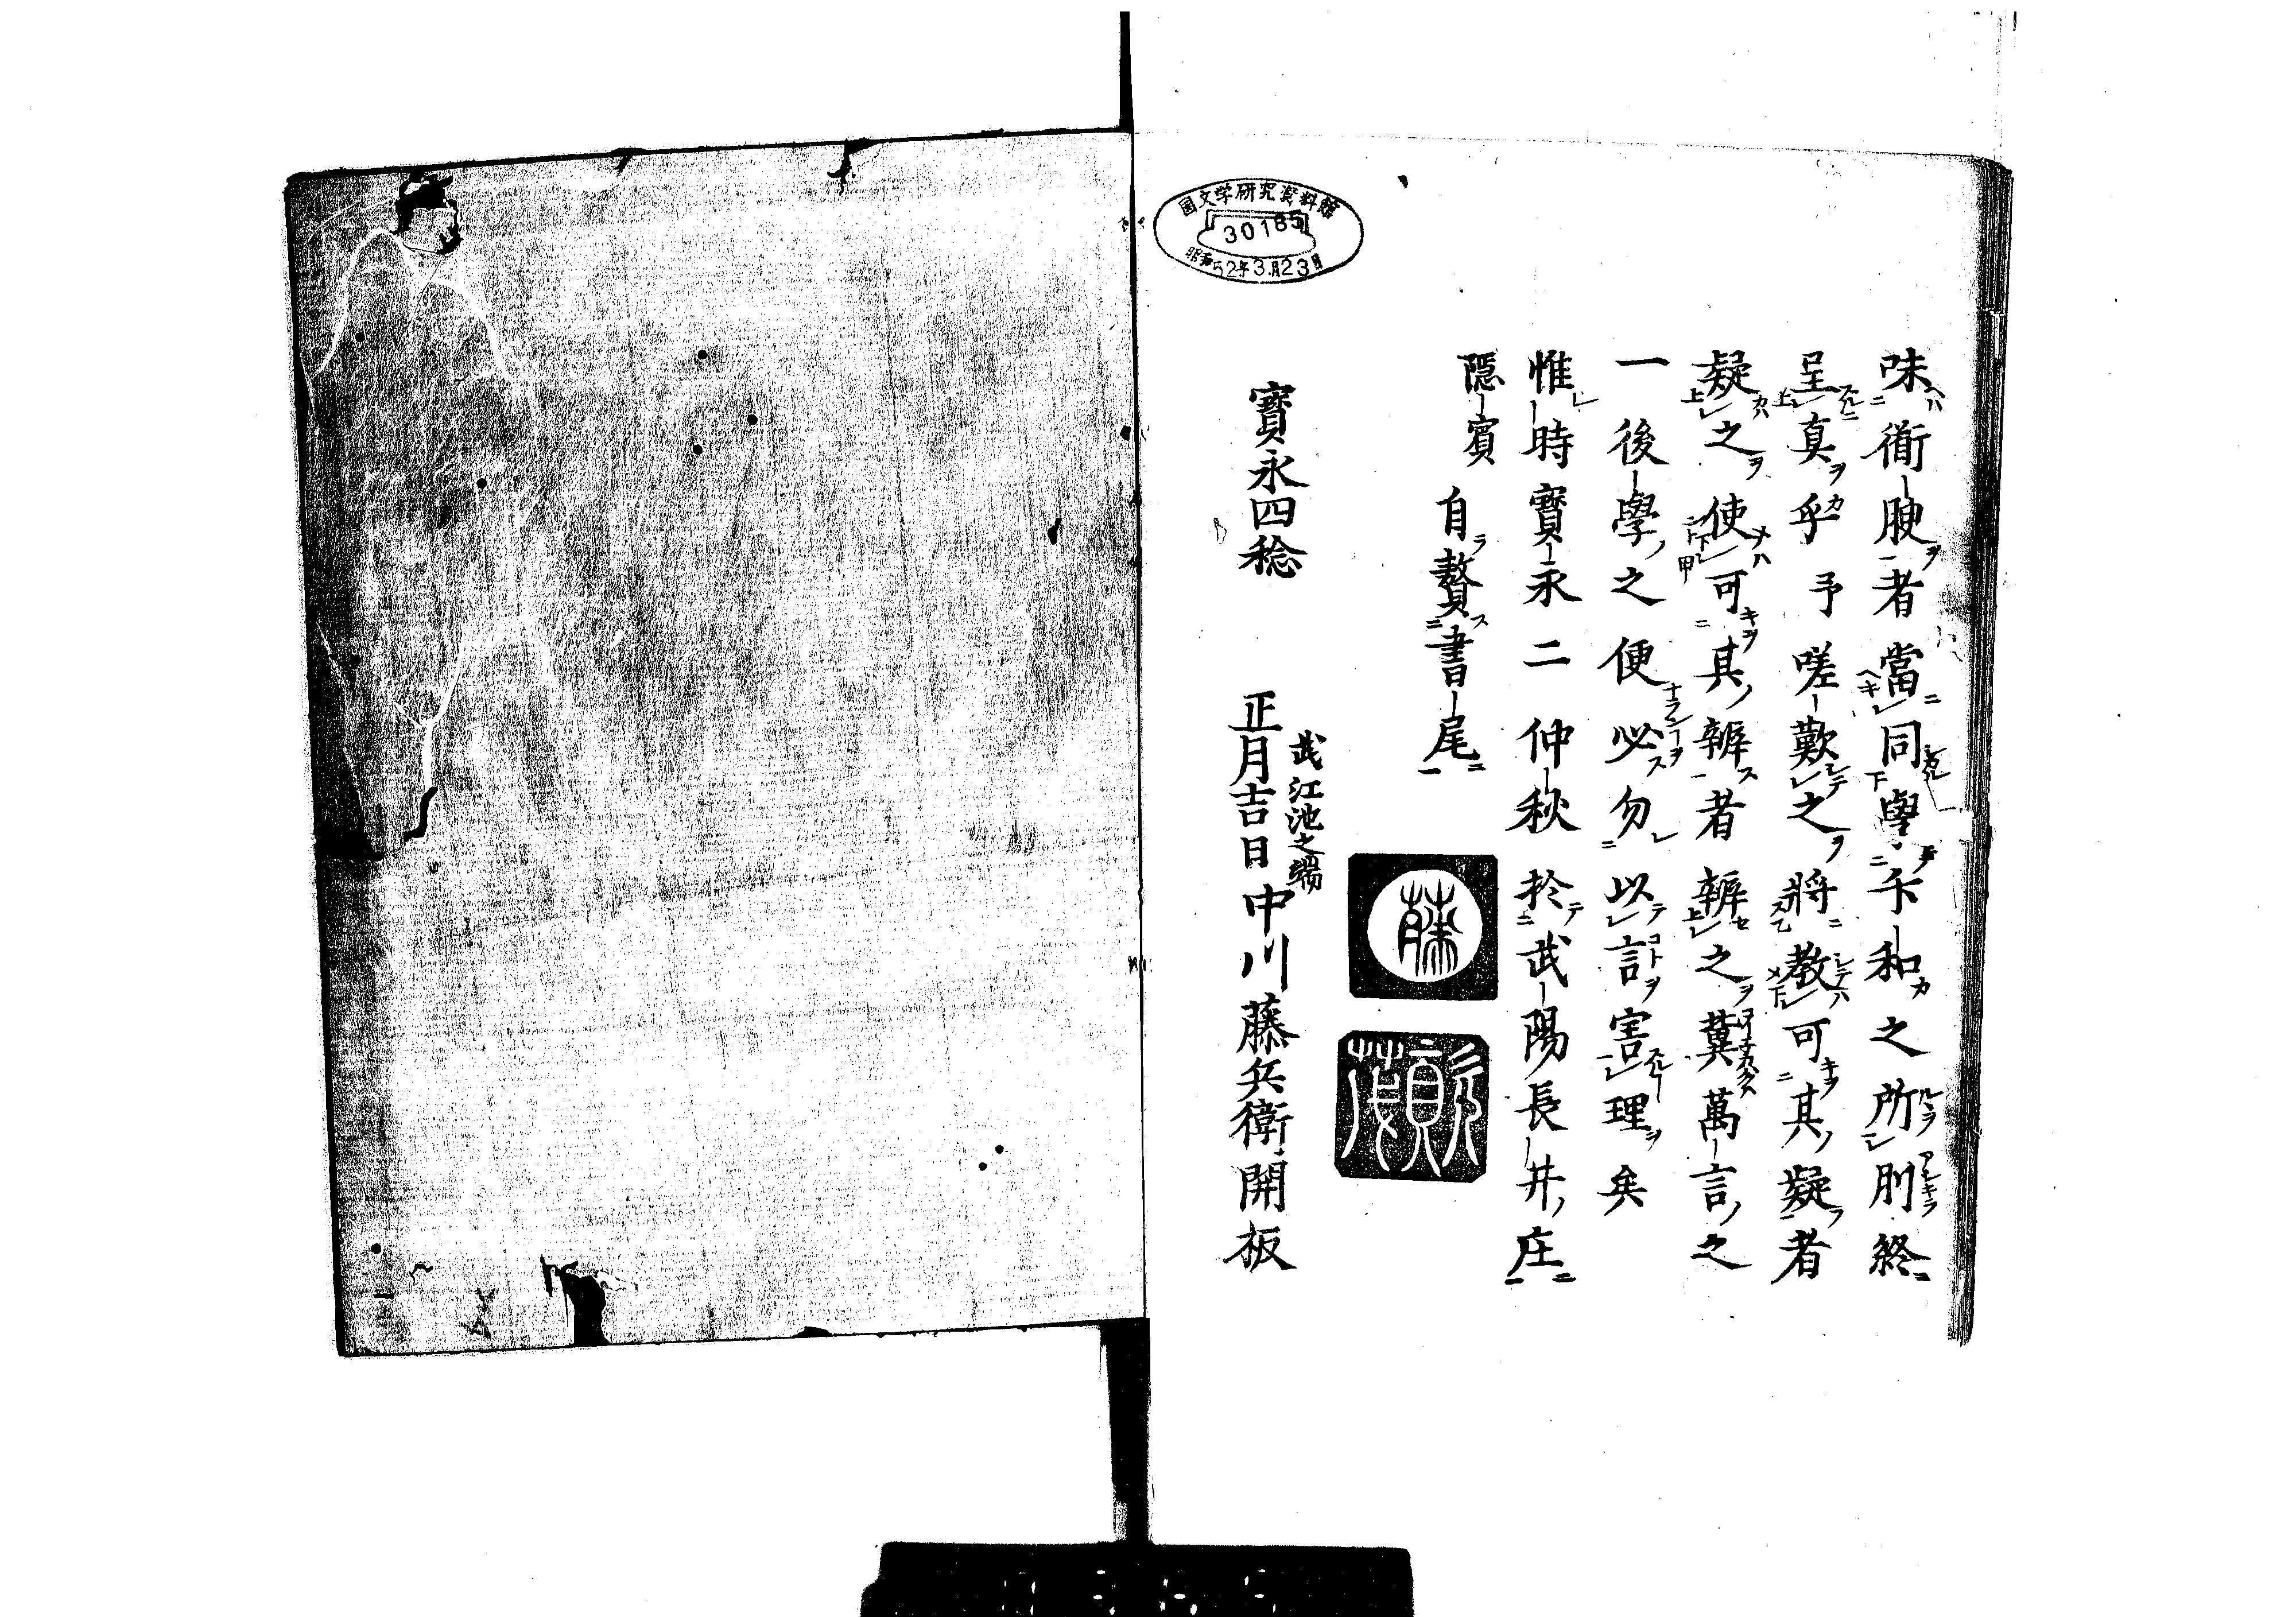 味衜腴者當同學卞和之所刖終
呈真乎予嗟歎之將教可其疑者
疑之使可其辨者辨之冀萬言之
一後學之便必勿以言害理矣
惟時寶永二仲秋於武陽長井庄
隱賓自贅書尾
藤
寶永四稔 正月吉日
武江池之端
中川藤兵衛開板
国文学研究資料館
30185
昭和52年3月23日